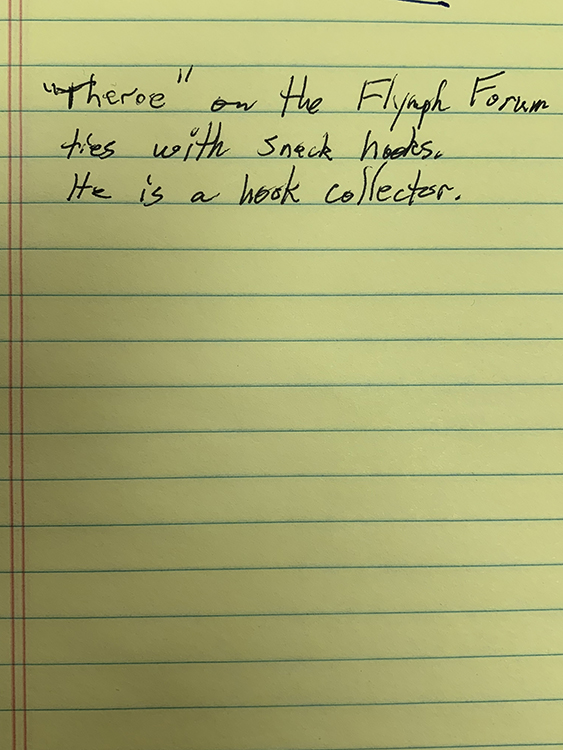 "Theroe" on the Flymph Forum
ties with sneck hooks.
He is a hook collector.